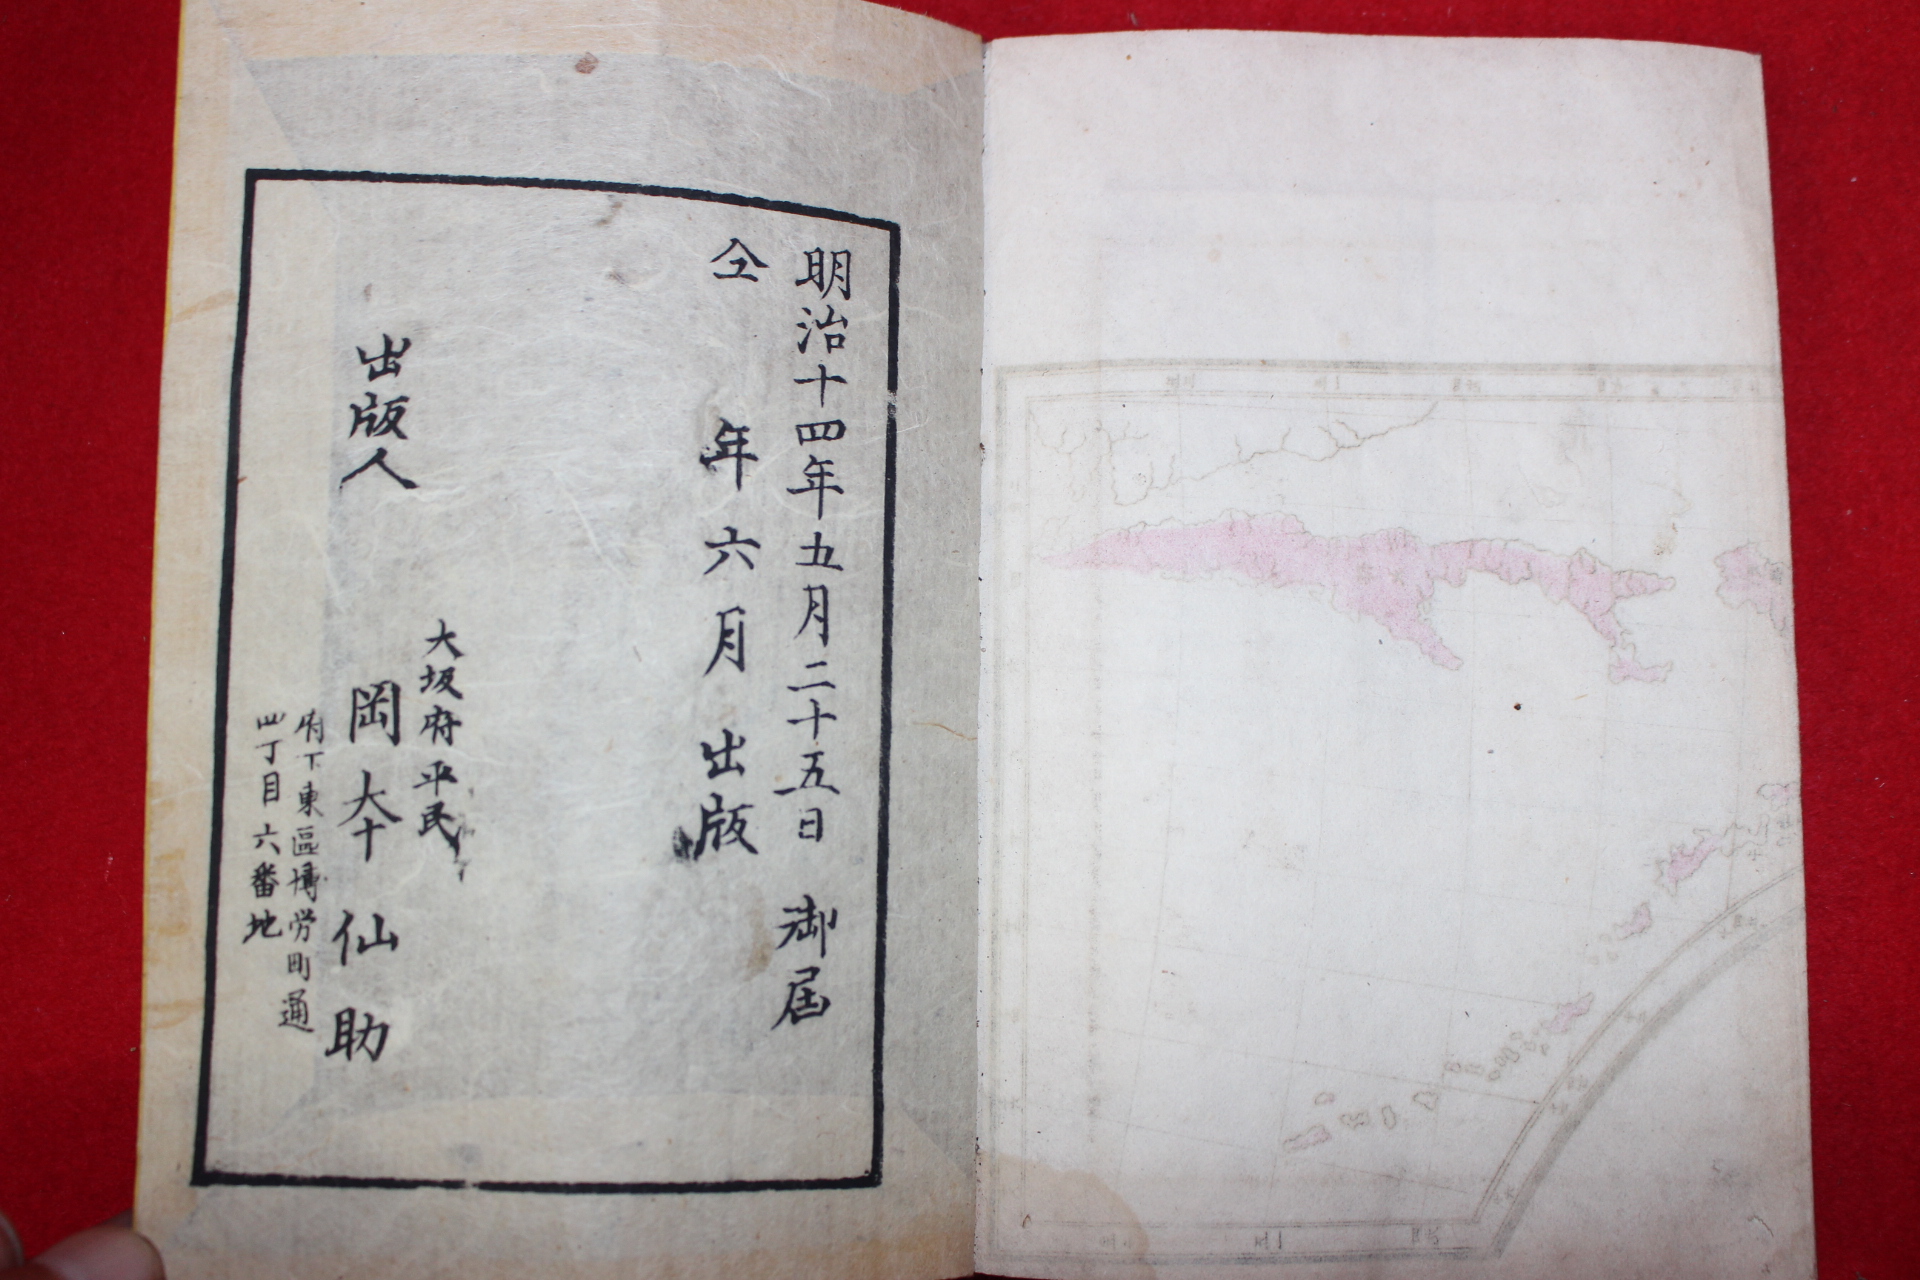 明治十四年五月二十五日 御届
仝 年六月出版
大坂府平民
出版人 岡本仙助
府下東區博労町通
四丁目六番地